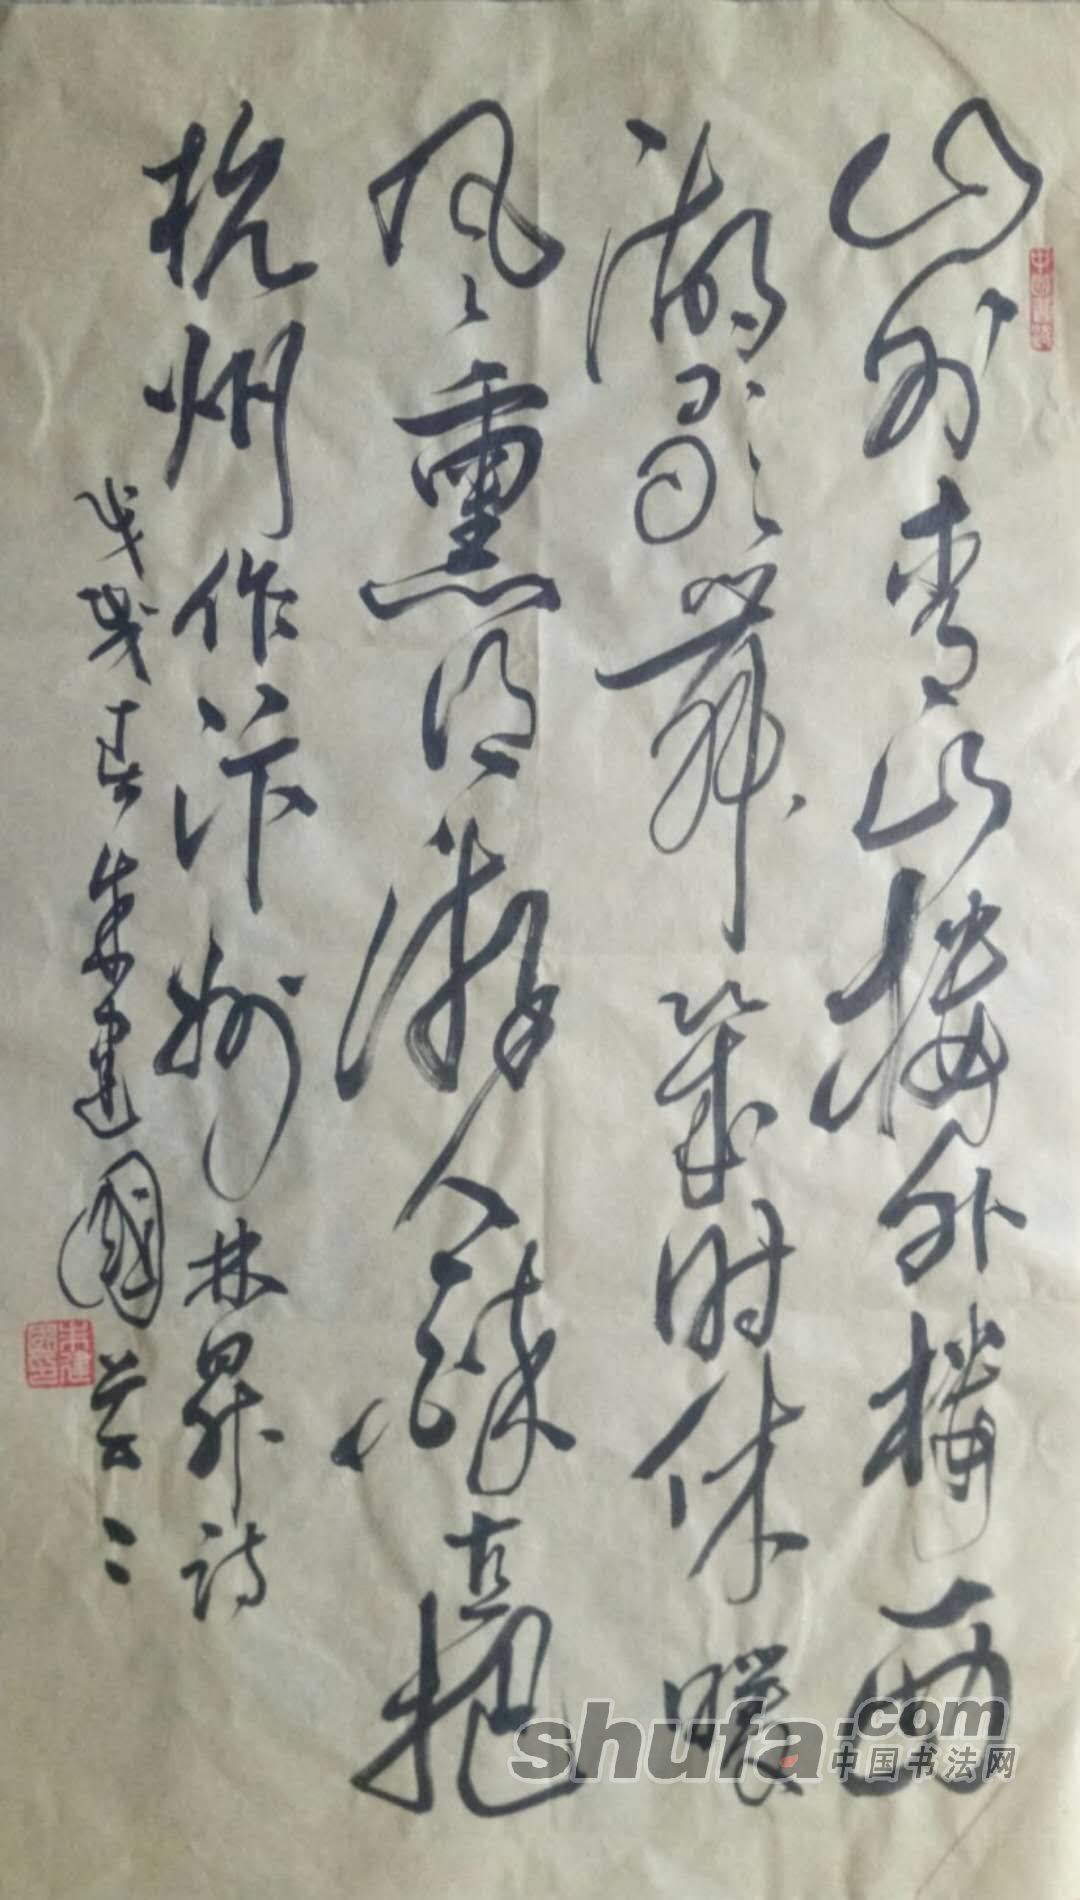 山外青山楼外楼西
湖歌舞幾时休暖
风熏得游人醉直把
杭州作汴州 林昇诗
戊戌春朱建國
朱建國印
shufa.com
中国书法网